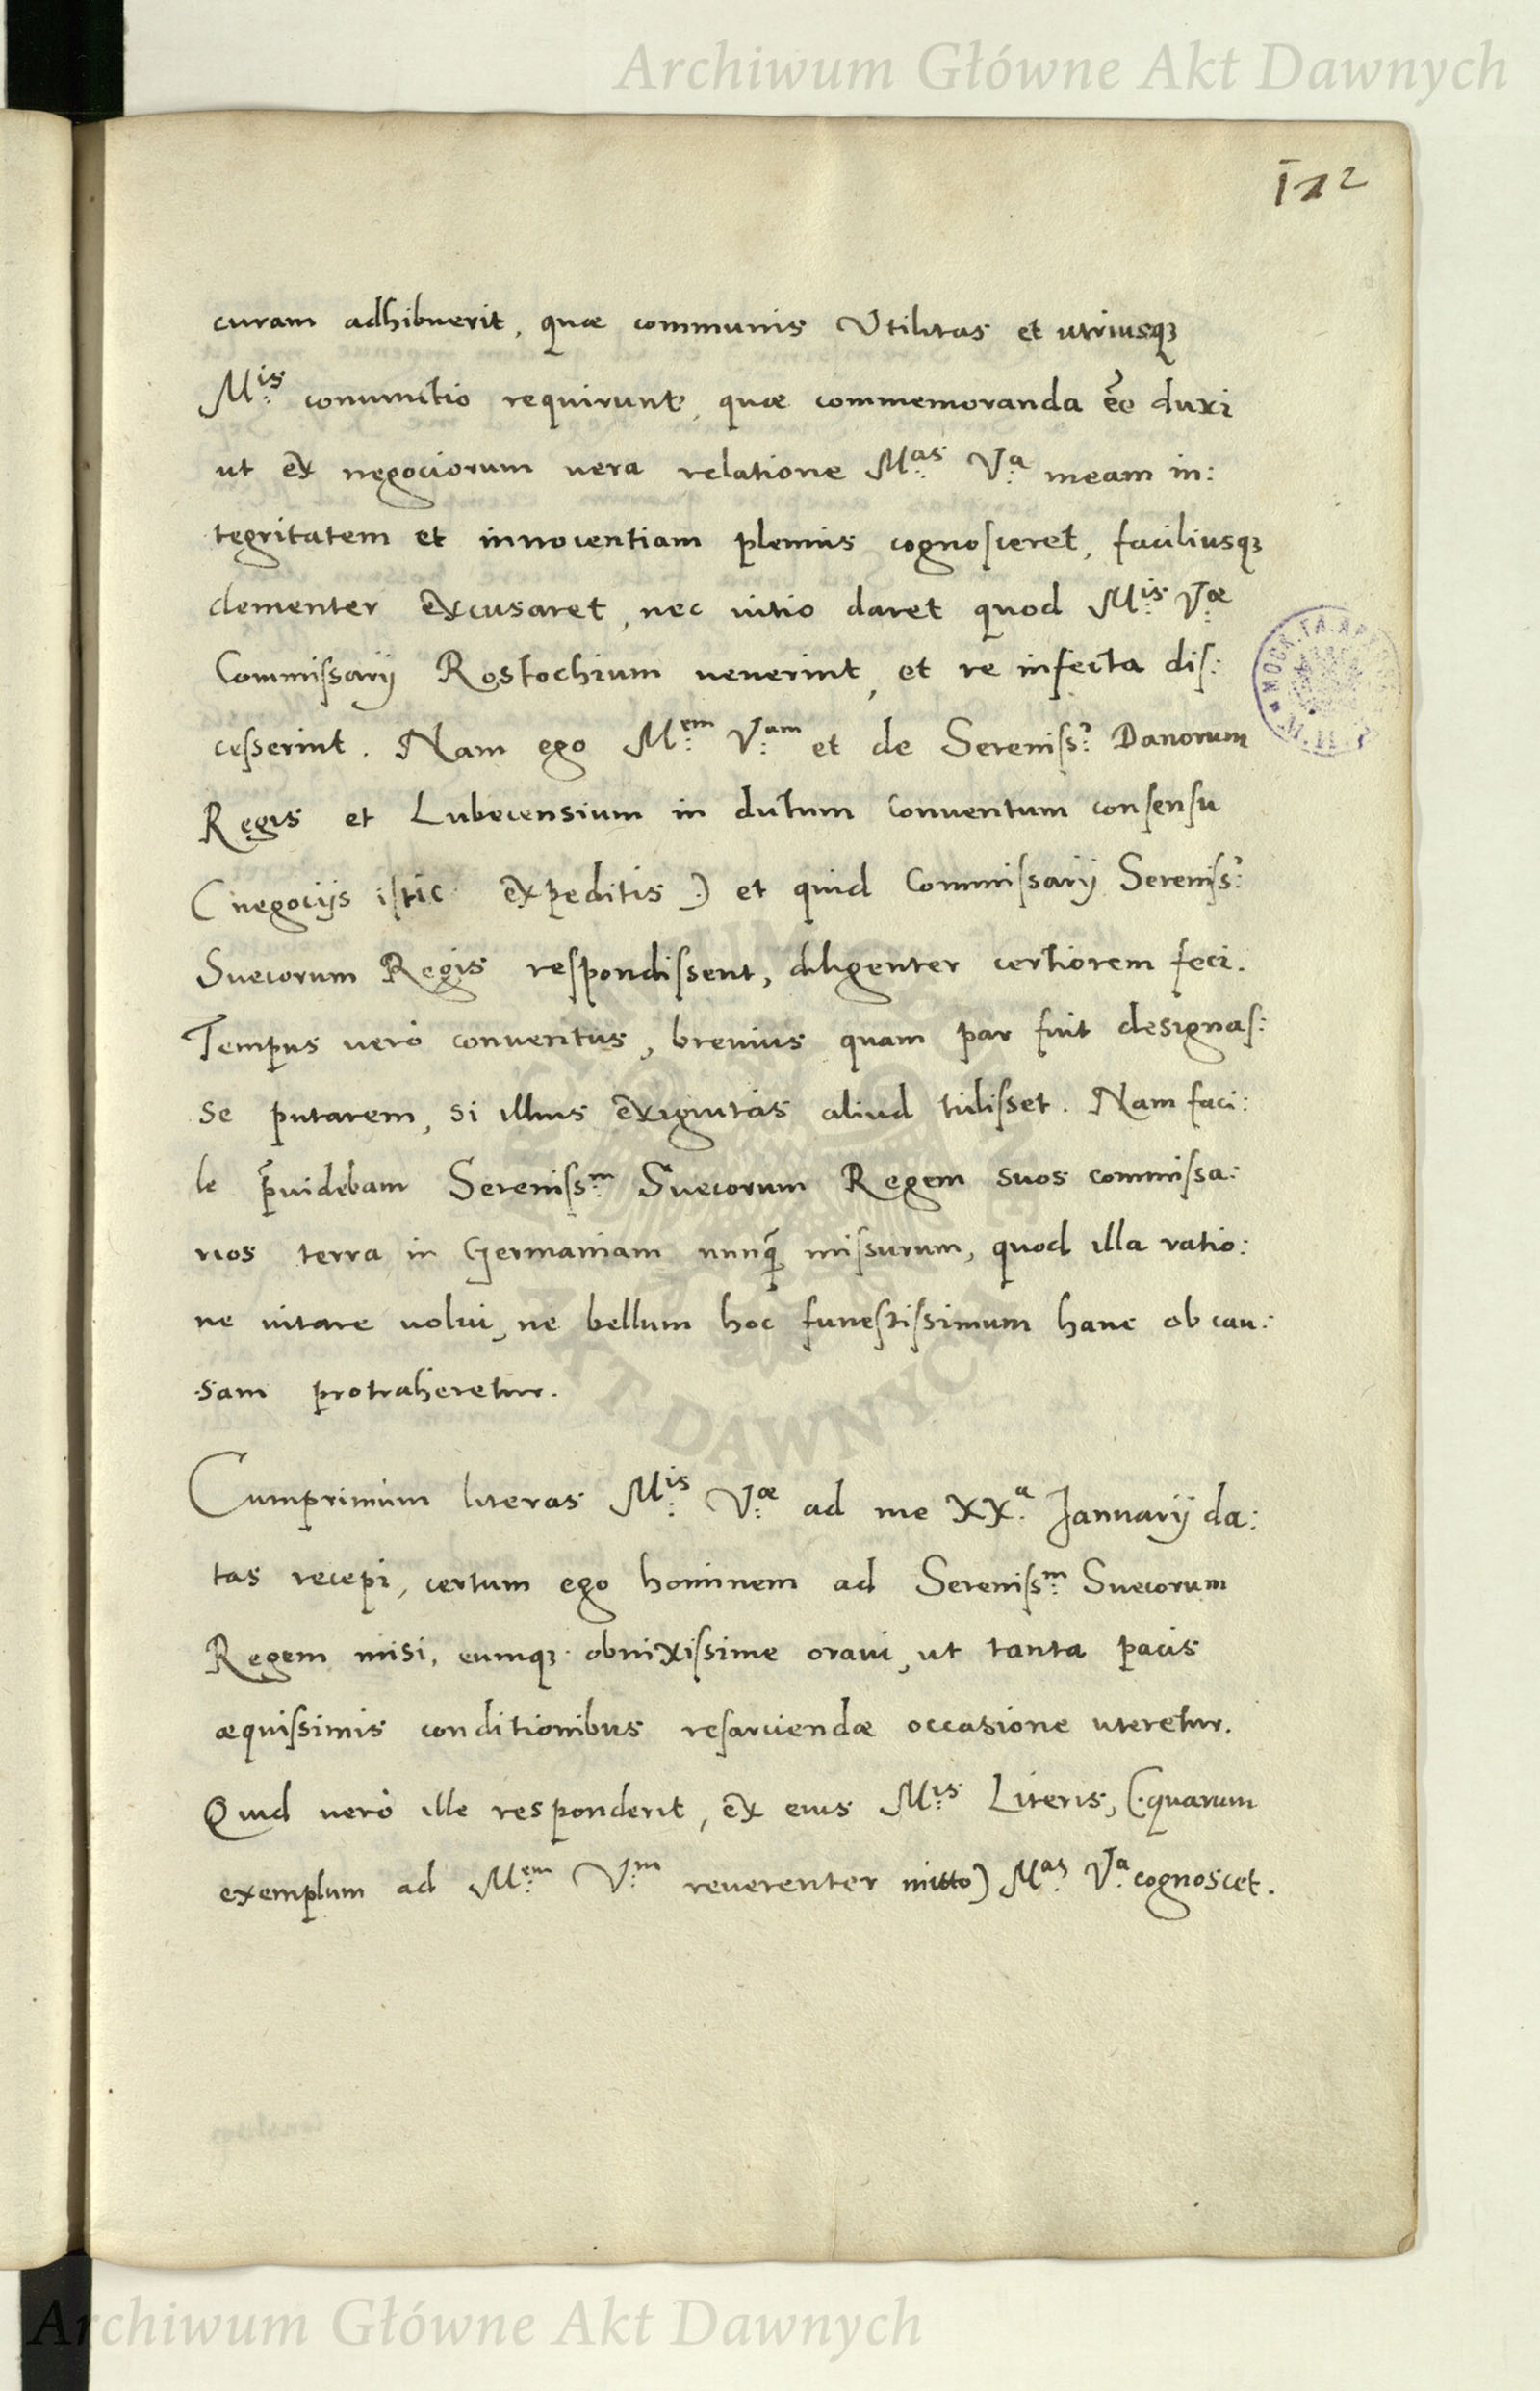 Archiwum Główne Akt Dawnych
112
curam adhibuerit, quæ communis Vtilitas et utriusqȝ
M:is coniunctio requirunt, quæ commemoranda eẽ duxi
ut ex negociorum uera relatione M:as V:a meam in:
tegritatem et innocentiam plenius cognosceret, faciliusqȝ
clementer excusaret, nec uitio daret quod M:is V:æ
Commissarij Rostochium uenerint, et re infecta dis:
cesserint. Nam ego M:em V:am et de Sereniss: Danorum
Regis et Lubecensium in dictum Conuentum consensu
(negocijs istic expeditis.) et quid Commissarij Sereniss:
Suecorum Regis respondissent, diligenter certiorem feci.
Tempus uerò conuentus, breuius quam par fuit designas:
se putarem, si illius exiguitas aliud tulisset. Nam faci:
le p̃uidebam Sereniss:m Suecorum Regem suos commissa:
rios terra in Germaniam nunq̃ missurum, quod illa ratio:
ne uitare uolui, ne bellum hoc funestissimum hanc ob cau:
sam protraheretur.
Cumprimum literas M:is V:æ ad me XX.a Januarij da:
tas recepi, certum ego hominem ad Sereniss:m Suecorum
Regem misi, eumqȝ obnixissime oraui, ut tanta pacis
æquissimis conditionibus resarciendæ occasione uteretur.
Quid uerò ille responderit, ex eius M:is Literis, (.quarum
exemplum ad M:em V:m reuerenter mitto) M:as V:a cognoscet.
AKT DAWNYCH
Archiwum Główne Akt Dawnych